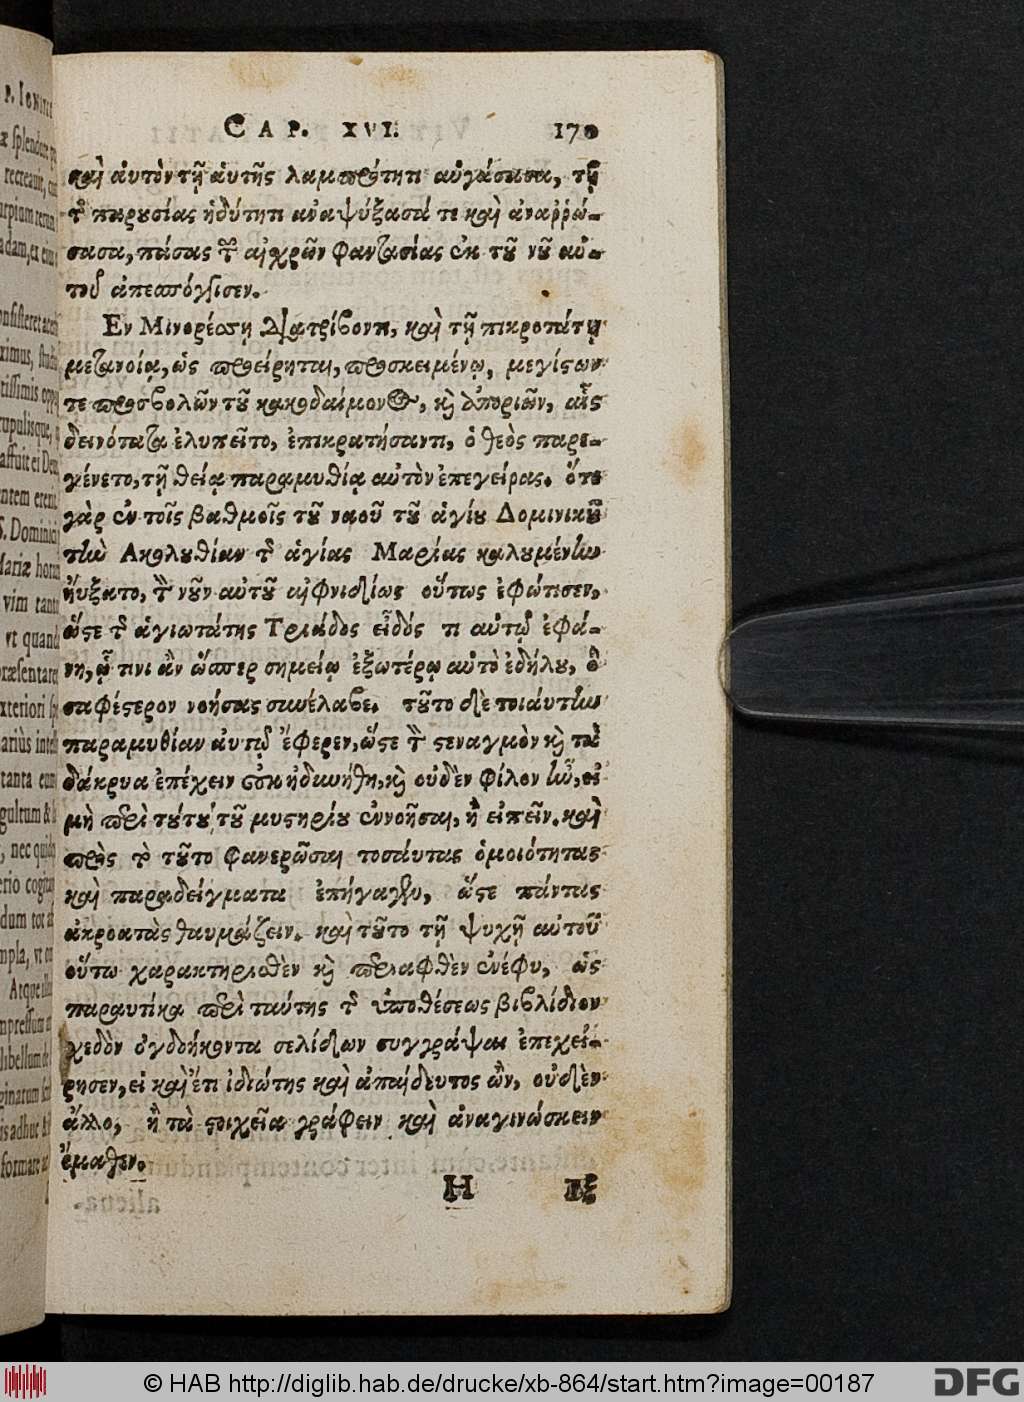 CAP. XVI. 170
καὶ ἀυτὸν τῇ ἀυτῆς λαμπρότητι αὐγάσασα, τῇ
τῆς παρουσίας ἡδύτητι αναψύξασά τε καὶ ἀναῤῥώ-
σασα, πάσας τὰς αἰχρῶν φαντασίας ἐκ τοῦ νοῦ αὐ-
τοῦ ἀπεσπόγγισεν.
Εν Μινορέσῃ διατρίβοντι, καὶ τῇ πικροπάτῃ
μετανοίᾳ, ὡς προείρηται, προσκειμένῳ, μεγίστων
τε προσβολῶν τοῦ κακοδαίμονος, καὶ ἀποριῶν, αἷς
δεινότατα ἐλυπεῖτο, ἐπικρατήσαντι, ὁ θεὸς παρε-
γένετο, τῇ θείᾳ παραμυθίᾳ αὐτὸν ἐπεγείρας. ὅτε
γὰρ ἐν τοῖς βαθμοῖς τοῦ ναοῦ τοῦ ἁγίου Δομινικοῦ
τὴν Ακολουθίαν τῆς ἁγίας Μαρίας καλουμένην
ἠύξατο, τὸν νοῦν αὐτοῦ αἰφνιδίως οὕτως ἐφώτισεν,
ὥστε τῆς ἁγιωτάτης Τριάδος εἶδός τι αὐτῷ ἐφά-
νη, ᾧ τινι ἂν ὥσπερ σημείῳ ἐξωτέρῳ αὐτὸ ἐδήλου, ὃ
σαφέστερον νοήσας συνέλαβε. τοῦτο δὲ τοιάυτην
παραμυθίαν ἀυτῷ ἔφερεν, ὥστε τὸν στεναγμὸν καὶ τὰ
δάκρυα ἐπέχειν οὐκ ἠδυνήθη, καὶ οὐδὲν φίλον ἦν, εἰ
μὴ περὶ τούτου τοῦ μυστηρίου ἐννοῆσαι, ἢ εἰπεῖν. καὶ
πρὸς τὸ τοῦτο φανερῶσαι τοσάυτας ὁμοιότητας
καὶ παραδείγματα ἐπήγαγεν, ὥστε πάντας
ἀκροατὰς θαυμάζειν. καὶ τοῦτο τῇ ψυχῇ αὐτοῦ
οὕτω χαρακτηρισθὲν καὶ περιαφθὲν ἐνέφυ, ὡς
παραυτίκα περὶ ταύτης τῆς ὑποθέσεως βιβλίδιον
χεδὸν ὀγδοήκοντα σελίδων συγγράψαι ἐπεχεί-
ρησεν, εἰ καὶ ἔτι ἰδιώτης καὶ ἀπαίδευτος ὢν, οὐδὲν
ἄλλο, ἢ τὰ στοιχεῖα γράφειν καὶ ἀναγινώσκειν
ἔμαθεν.
H Εξ
© HAB http://diglib.hab.de/drucke/xb-864/start.htm?image=00187
DFG